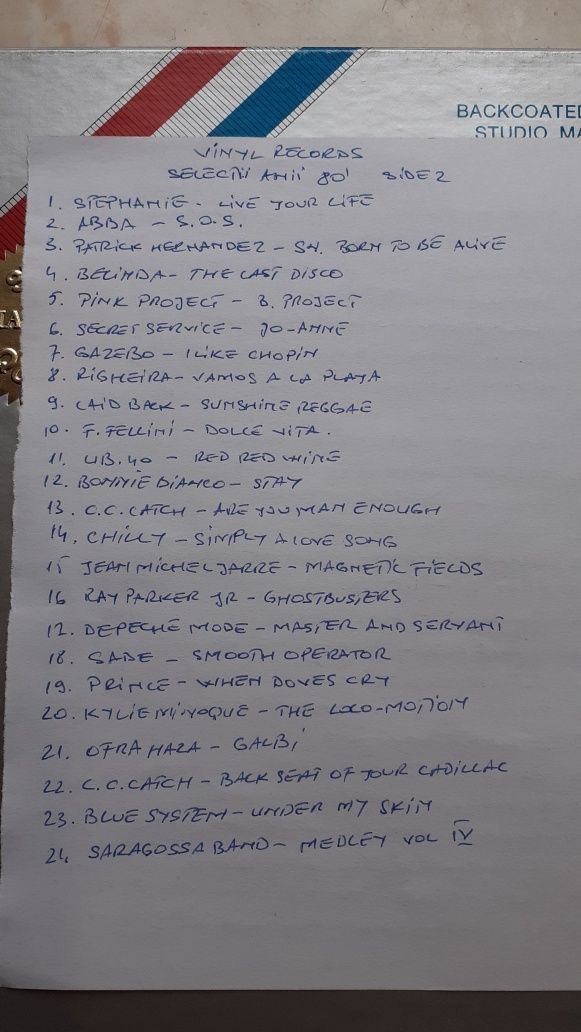 BACKCOATED
STUDIO MA
VINYL RECORDS
SELECTII ANII 80' SIDE 2
1. STEPHANIE - LIVE YOUR LIFE
2. ABBA - S.O.S.
3. PATRICK HERNANDEZ - SN. BORN TO BE ALIVE
4. BELINDA - THE LAST DISCO
5. PINK PROJECT - B. PROJECT
6. SECRET SERVICE - JO-ANNE
7. GAZEBO - I LIKE CHOPIN
8. RIGHEIRA - VAMOS A LA PLAYA
9. LAID BACK - SUNSHINE REGGAE
10. F. FELLINI - DOLCE VITA.
11. UB.40 - RED RED WINE
12. BONNIE BIANCO - STAY
13. C.C. CATCH - ARE YOU MAN ENOUGH
14. CHILLY - SIMPLY A LOVE SONG
15 JEAN MICHEL JARRE - MAGNETIC FIELDS
16 RAY PARKER JR - GHOSTBUSTERS
17. DEPECHE MODE - MASTER AND SERVANT
18. SADE - SMOOTH OPERATOR
19. PRINCE - WHEN DOVES CRY
20. KYLIE MINOQUE - THE LOCO-MOTION
21. OFRA HAZA - GALBI
22. C.C. CATCH - BACK SEAT OF YOUR CADILLAC
23. BLUE SYSTEM - UNDER MY SKIN
24 SARAGOSSA BAND - MEDLEY VOL IV